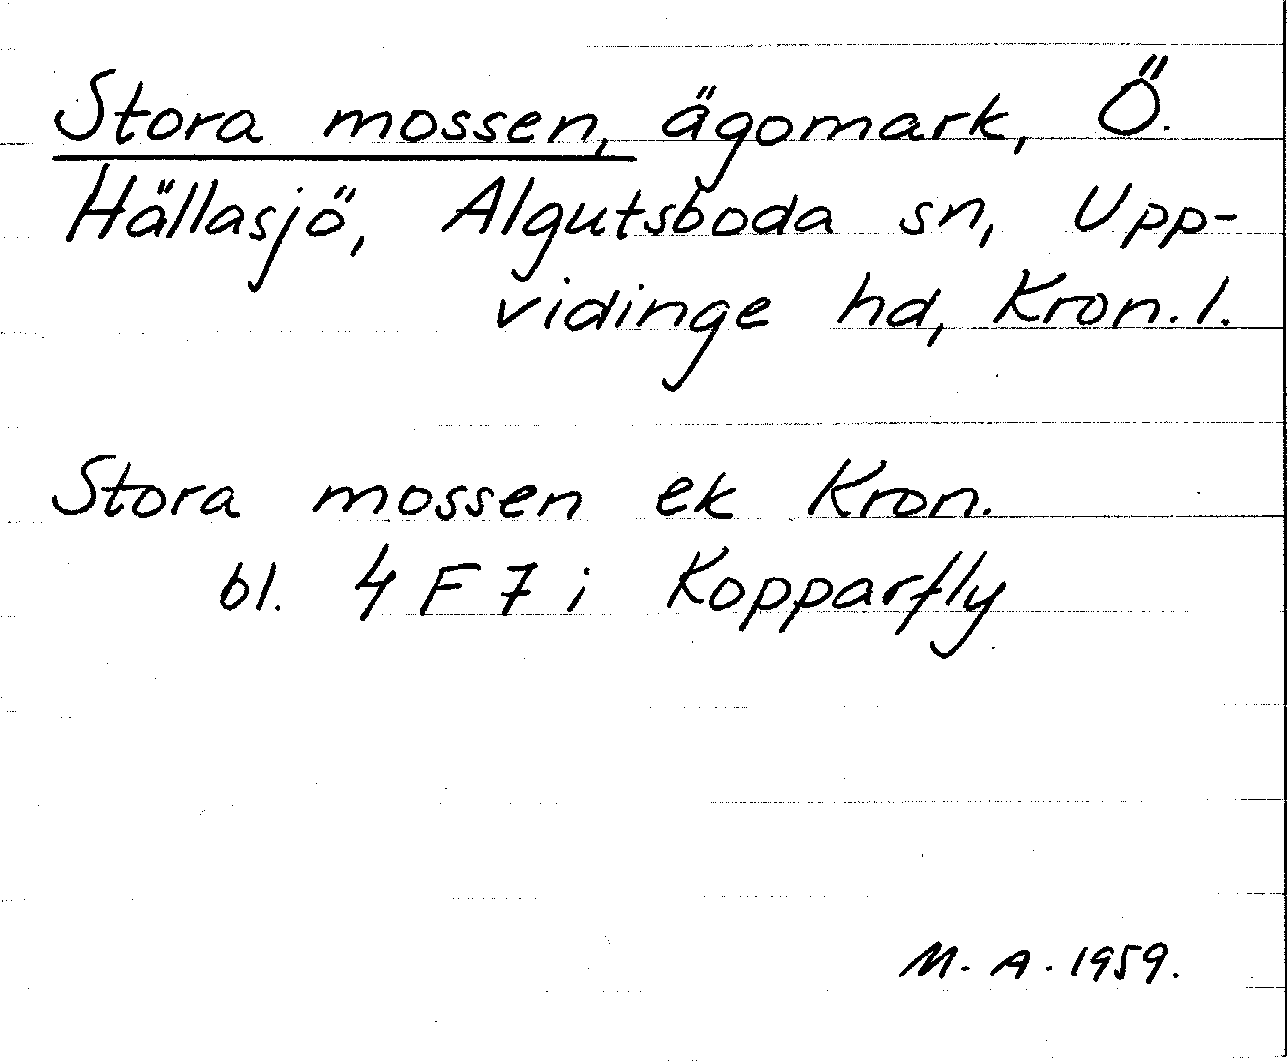 Stora mossen, ägomark, Ö.
Hällasjö, Algutsboda sn, Upp-
vidinge hd, Kron. l.
Stora mossen ek Kron.
bl. 4 F 7 i Kopparfly
M. A. 1959.